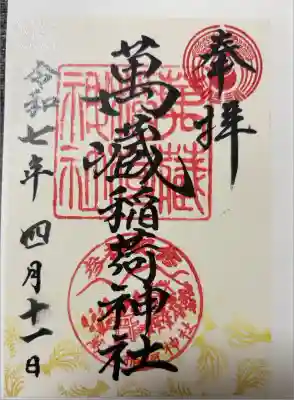 奉拝
萬蔵稲荷神社
令和七年四月十一日